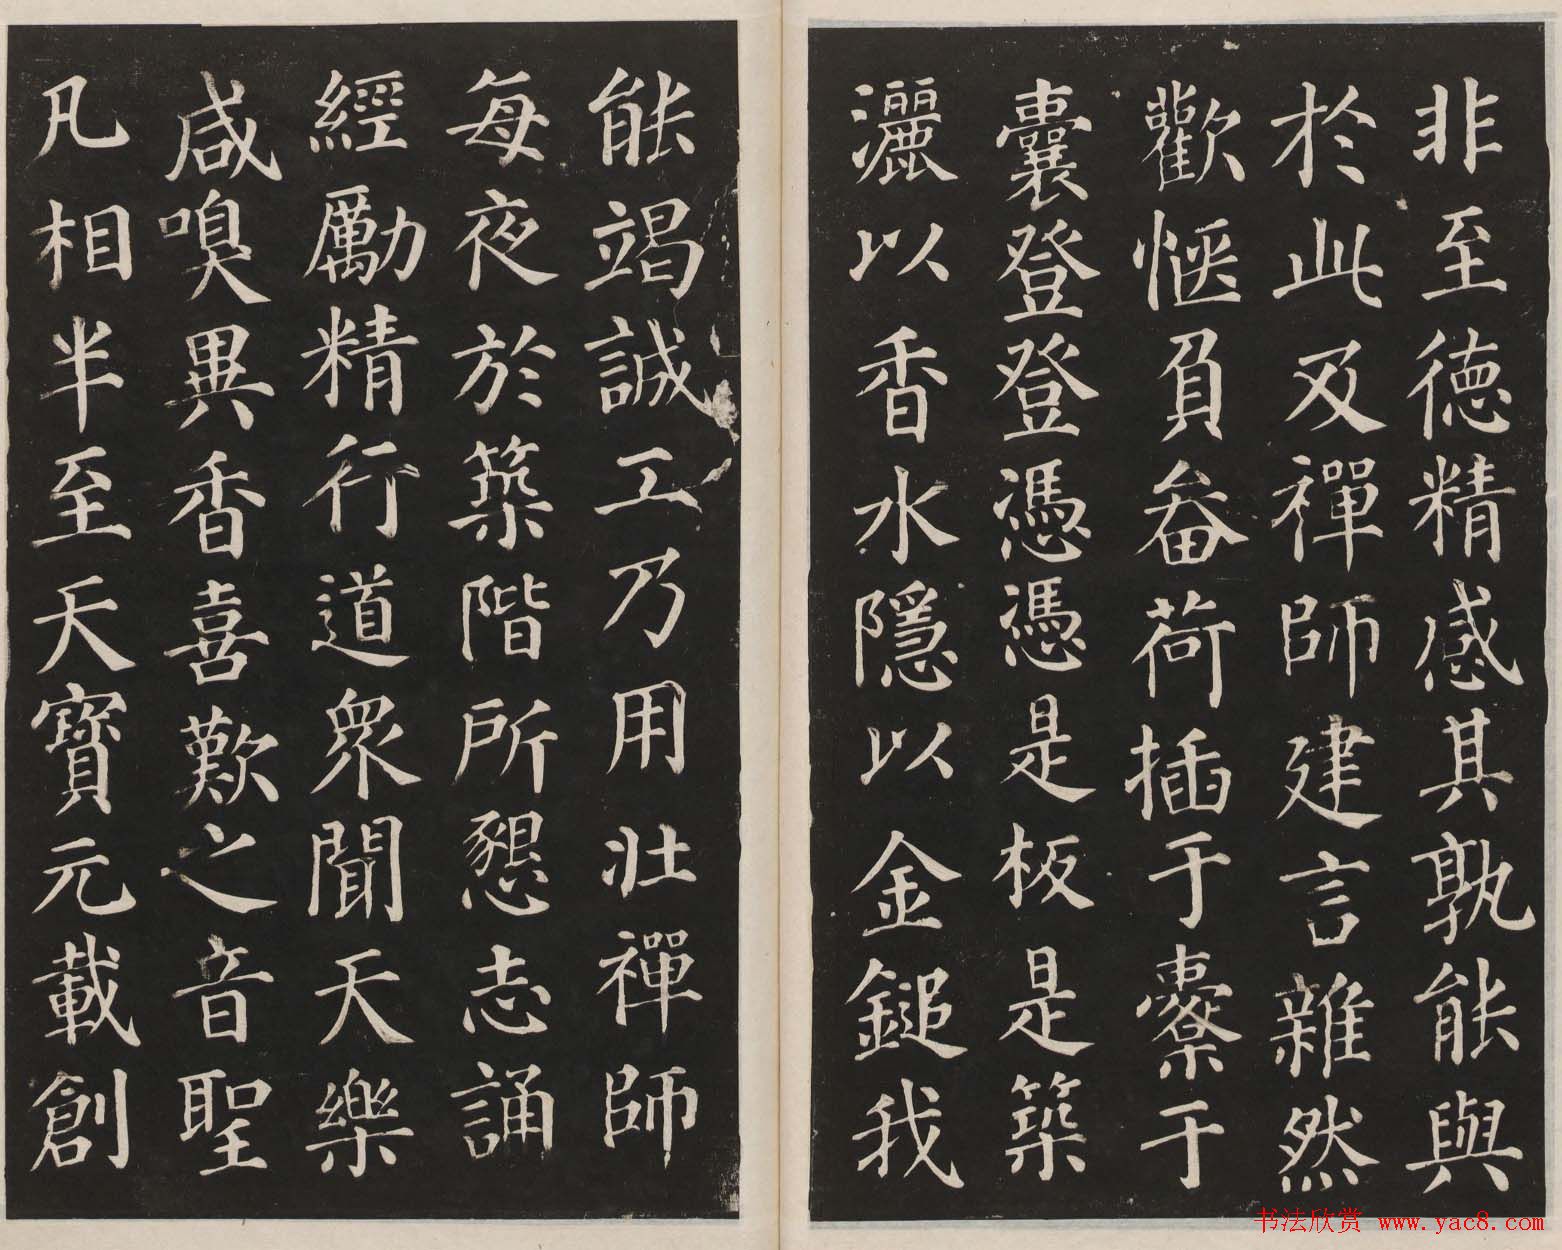 非至德精感其孰能與
於此及禪師建言雜然
歡愜負畚荷插于橐于
囊登登憑憑是板是築
灑以香水隱以金鎚我
能竭誠工乃用壯禪師
每夜於築階所懇志誦
經勵精行道眾聞天樂
咸嗅異香喜歎之音聖
凡相半至天寶元載創
书法欣赏 www.yac8.com